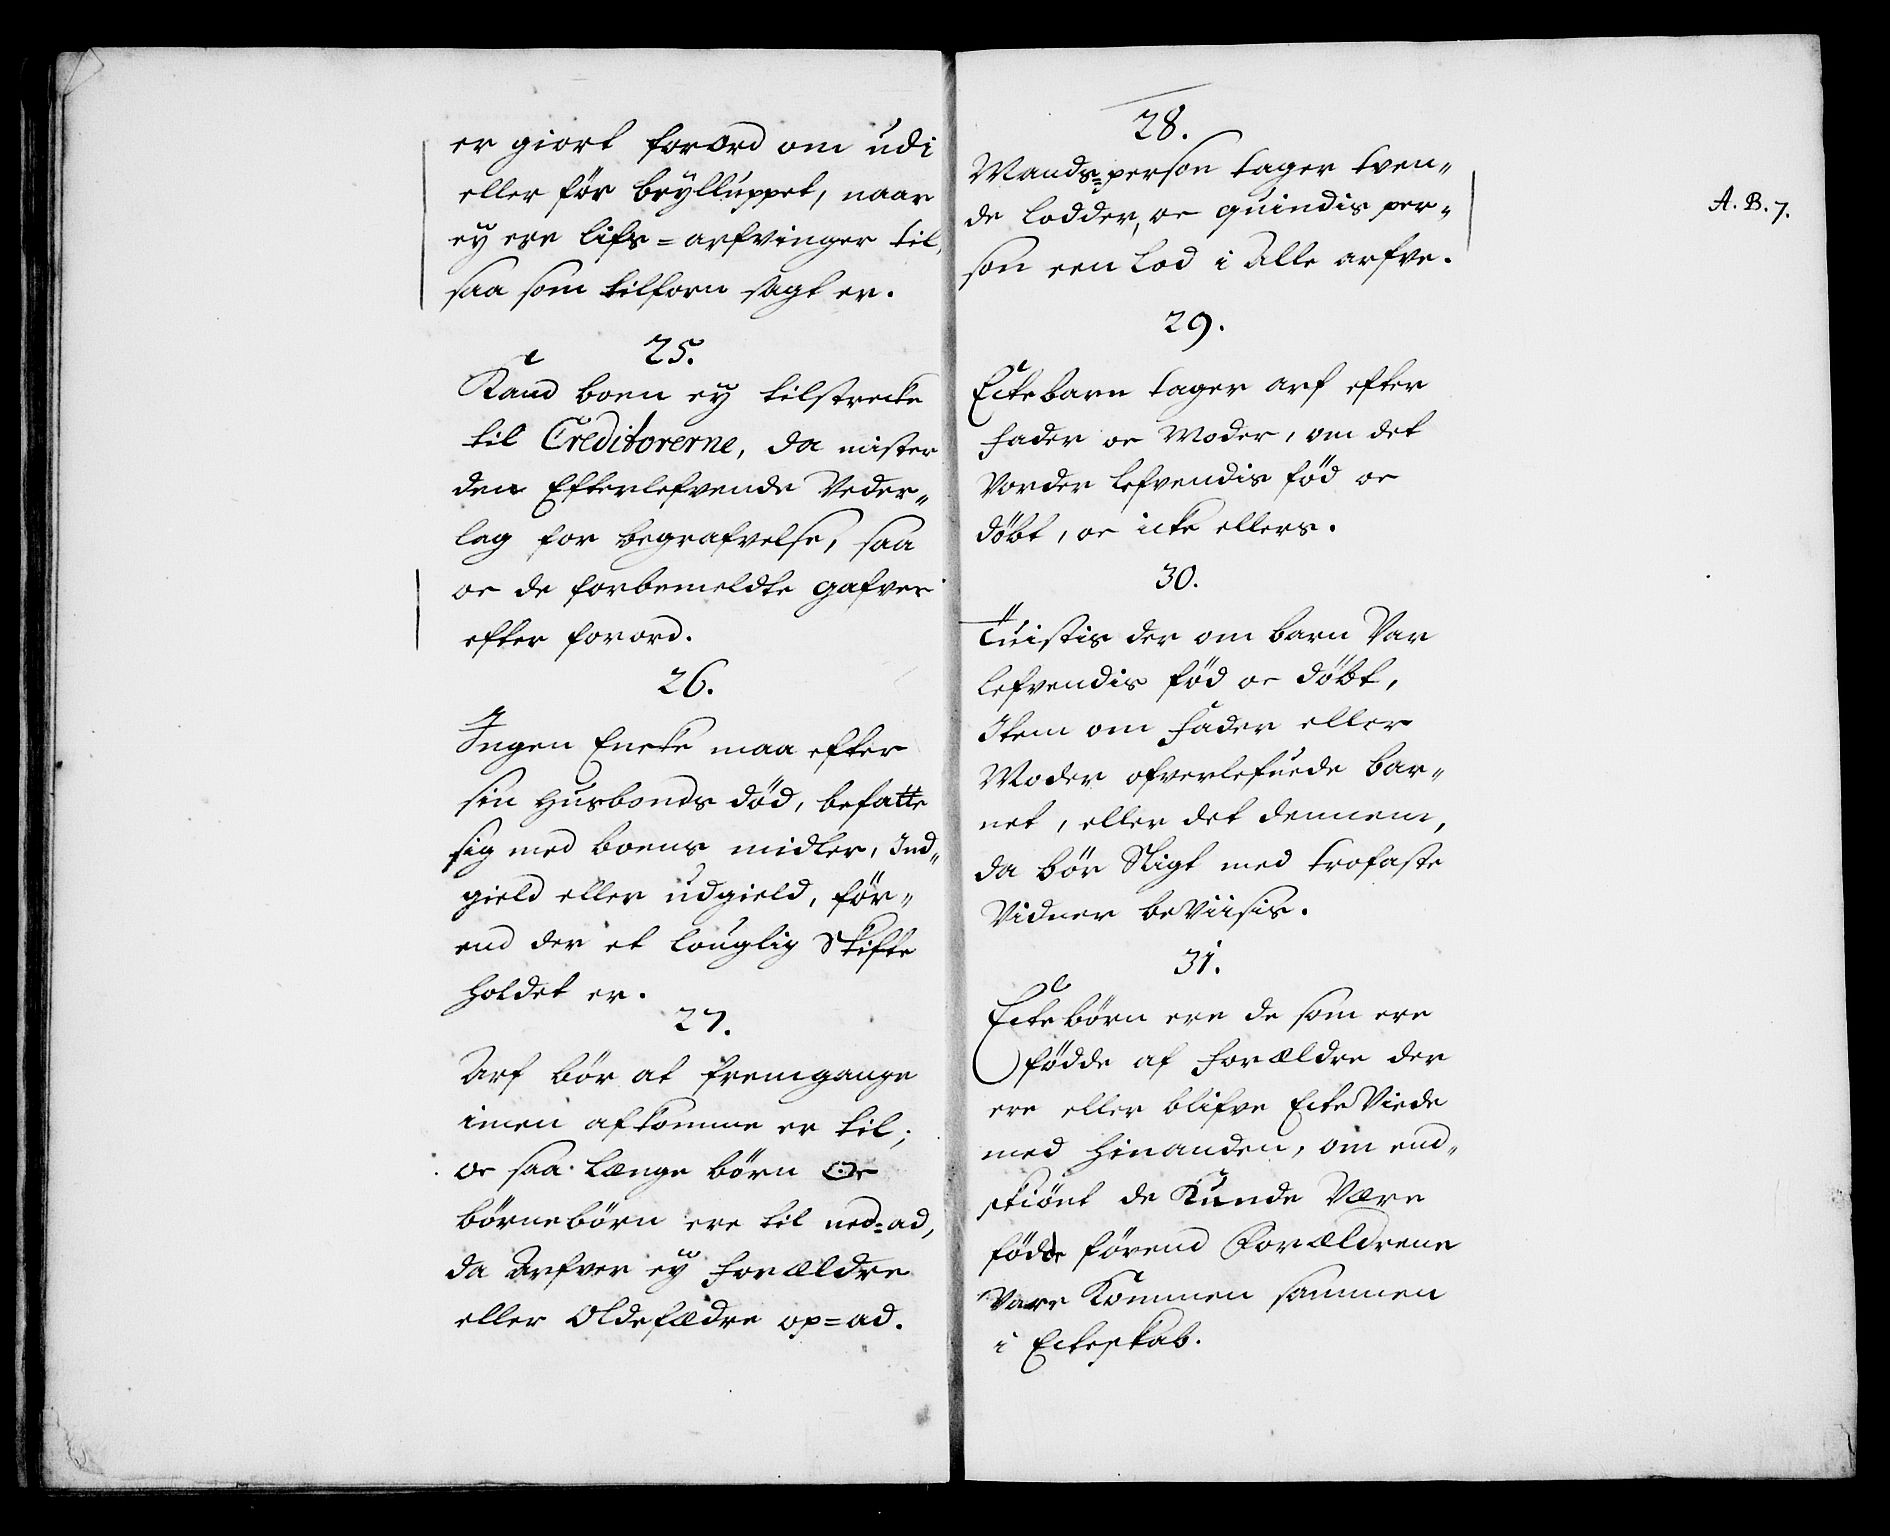 er giort forord om udi
eller før brylluppet, naar
ey ere lifs=arfvinger til,
saa som tilforn sagt er.
25.
Kand boen ey tilstrecke
til Creditorerne, da mister
den Efterlefvende Veder„
lag for begrafvelse, saa
oc de forbemeldte gafver
efter forord.
26.
Ingen Encke maa efter
sin Husbonds død, befatte
sig med boens midler, Ind„
gield eller udgield, før„
end der et louglig Skifte
holdet er.
27.
Arf bør at fremgange
imen afkomme er til;
oc saa længe børn oc
børnebørn ere til ned=ad,
da Arfver ey forældre
eller Oldefædre op=ad.
28.
Mands=person tager tven„
de lodder, oc quindis per„
son een Lod i Alle arfve.
A. B. 7.
29.
Ectebarn tager arf efter
fader oc Moder, om det
Vorder lefvendis fød oc
døbt, oc icke ellers.
30.
Tuistis der om barn Var
lefvendis fød oc døbt,
Item om fader eller
Moder ofverlefuede bar„
net, eller det dennem,
da bør Sligt med trofaste
Vidner beViisis.
31.
Ectebørn ere de som ere
fødde af forældre der
ere eller blifve EcteViede
med hinanden, om end„
skiønt de Kunde Være
fødde førend Forældrene
Vare Kommen sammen
i Ecteskab.